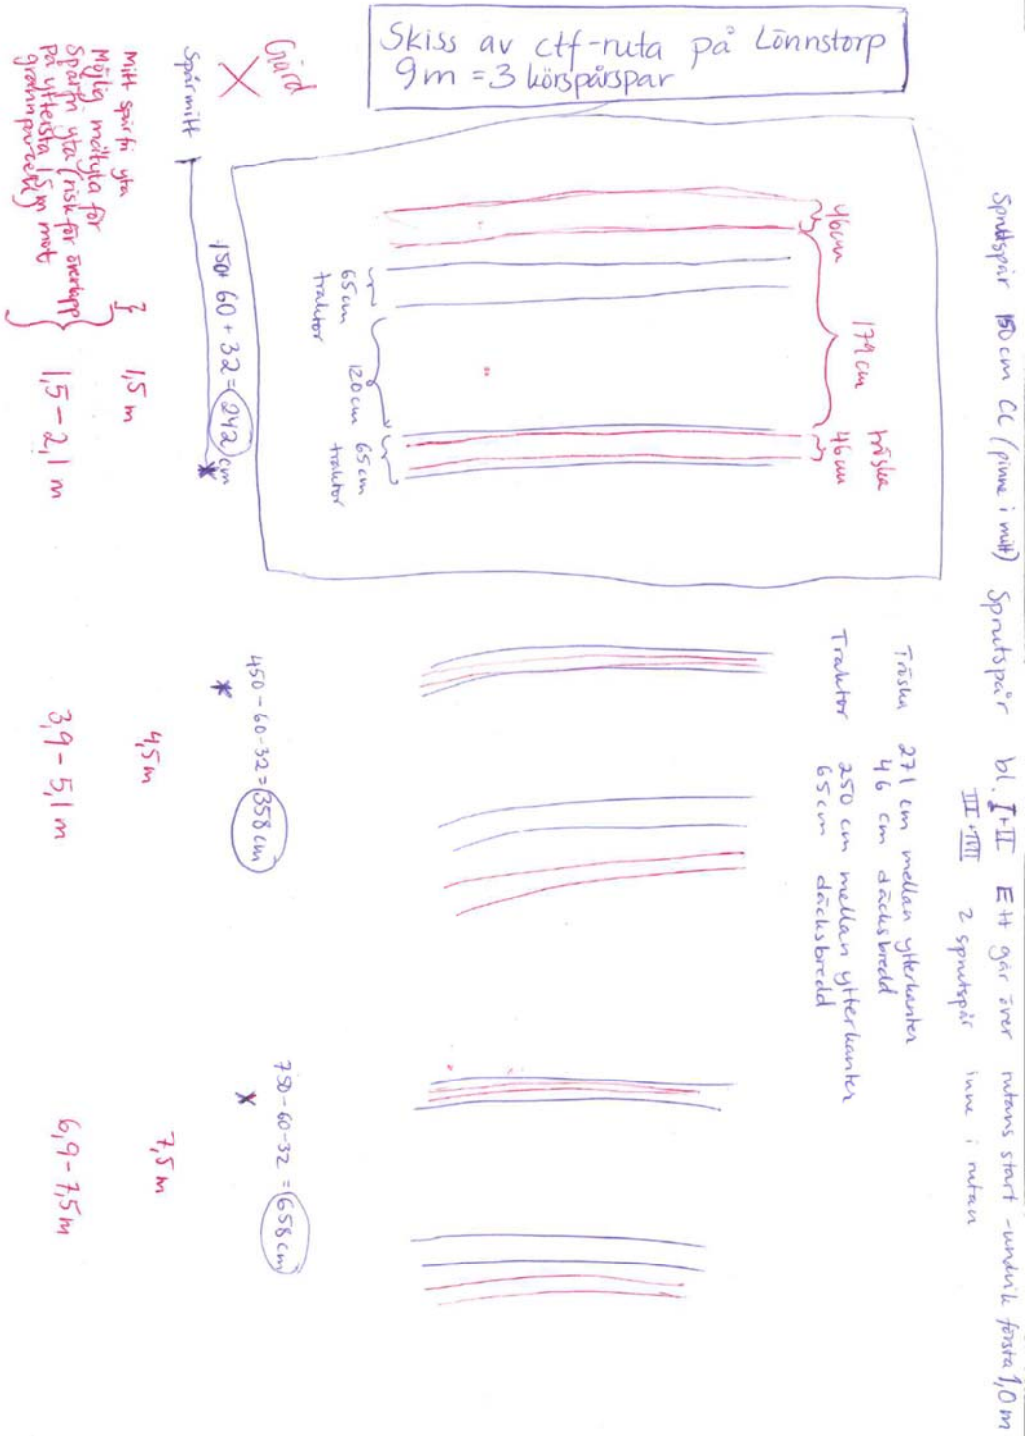 Skiss av ctf-ruta på Lönnstorp
9m = 3 körspårspar
Sprutspår 150 cm CC (pinne i mitt) Sprutspår bl. I+II EH går över rutans start - undvik första 1,0 m
III+IIII 2 sprutspår inne i rutan
Tröska 271 cm mellan ytterkanter
46 cm däcksbredd
Traktor 250 cm mellan ytterkanter
65 cm däcksbredd
46cm
179 cm
tröska
46cm
65cm
traktor
120cm
65cm
traktor
Gjärd
X
Spårmitt
150+60+32=242 cm
450-60-32=358 cm
750-60-32=658 cm
Mitt spårfri yta } 1,5 m 4,5 m 7,5 m
Möjlig mätyta för
Spårfri yta (risk för överlapp
på yttersta 1,5m mot
grannparcell) } 1,5-2,1 m 3,9-5,1 m 6,9-7,5 m